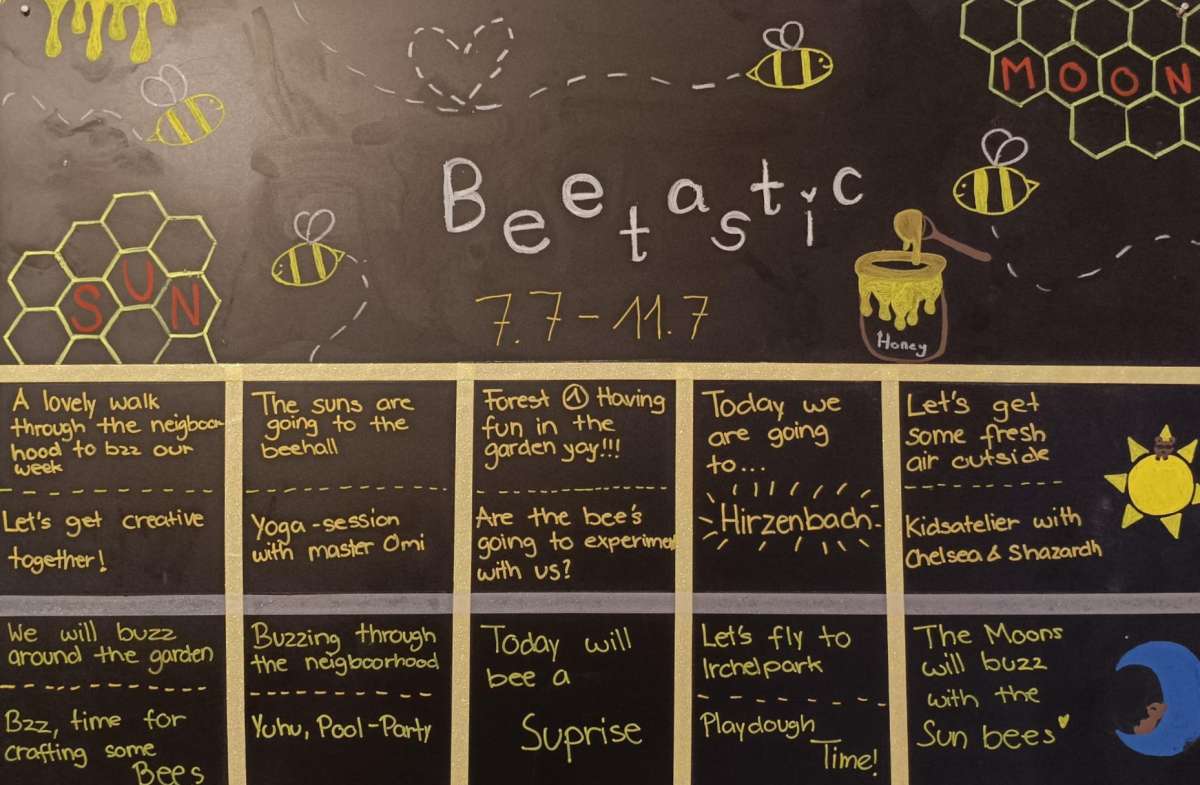 MOON
Beetastic
SUN
7.7-11.7
Honey
A lovely walk
through the neigboor
hood to bzz our
week
Let's get creative
together!
The suns are
going to the
beehall
Yoga-session
with master Omi
Forest ① Having
fun in the
garden yay!!!
Are the bee's
going to experimet
with us?
Today we
are going
to...
Hirzenbach
Let's get
some fresh
air outside
Kidsatelier with
Chelsea & Shazardh
We will buzz
around the garden
Bzz, time for
crafting some
Bees
Buzzing through
the neigboorhood
Yuhu, Pool-Party
Today will
bee a
Suprise
Let's fly to
Irchelpark
Playdough
Time!
The Moons
will buzz
with the
Sun bees